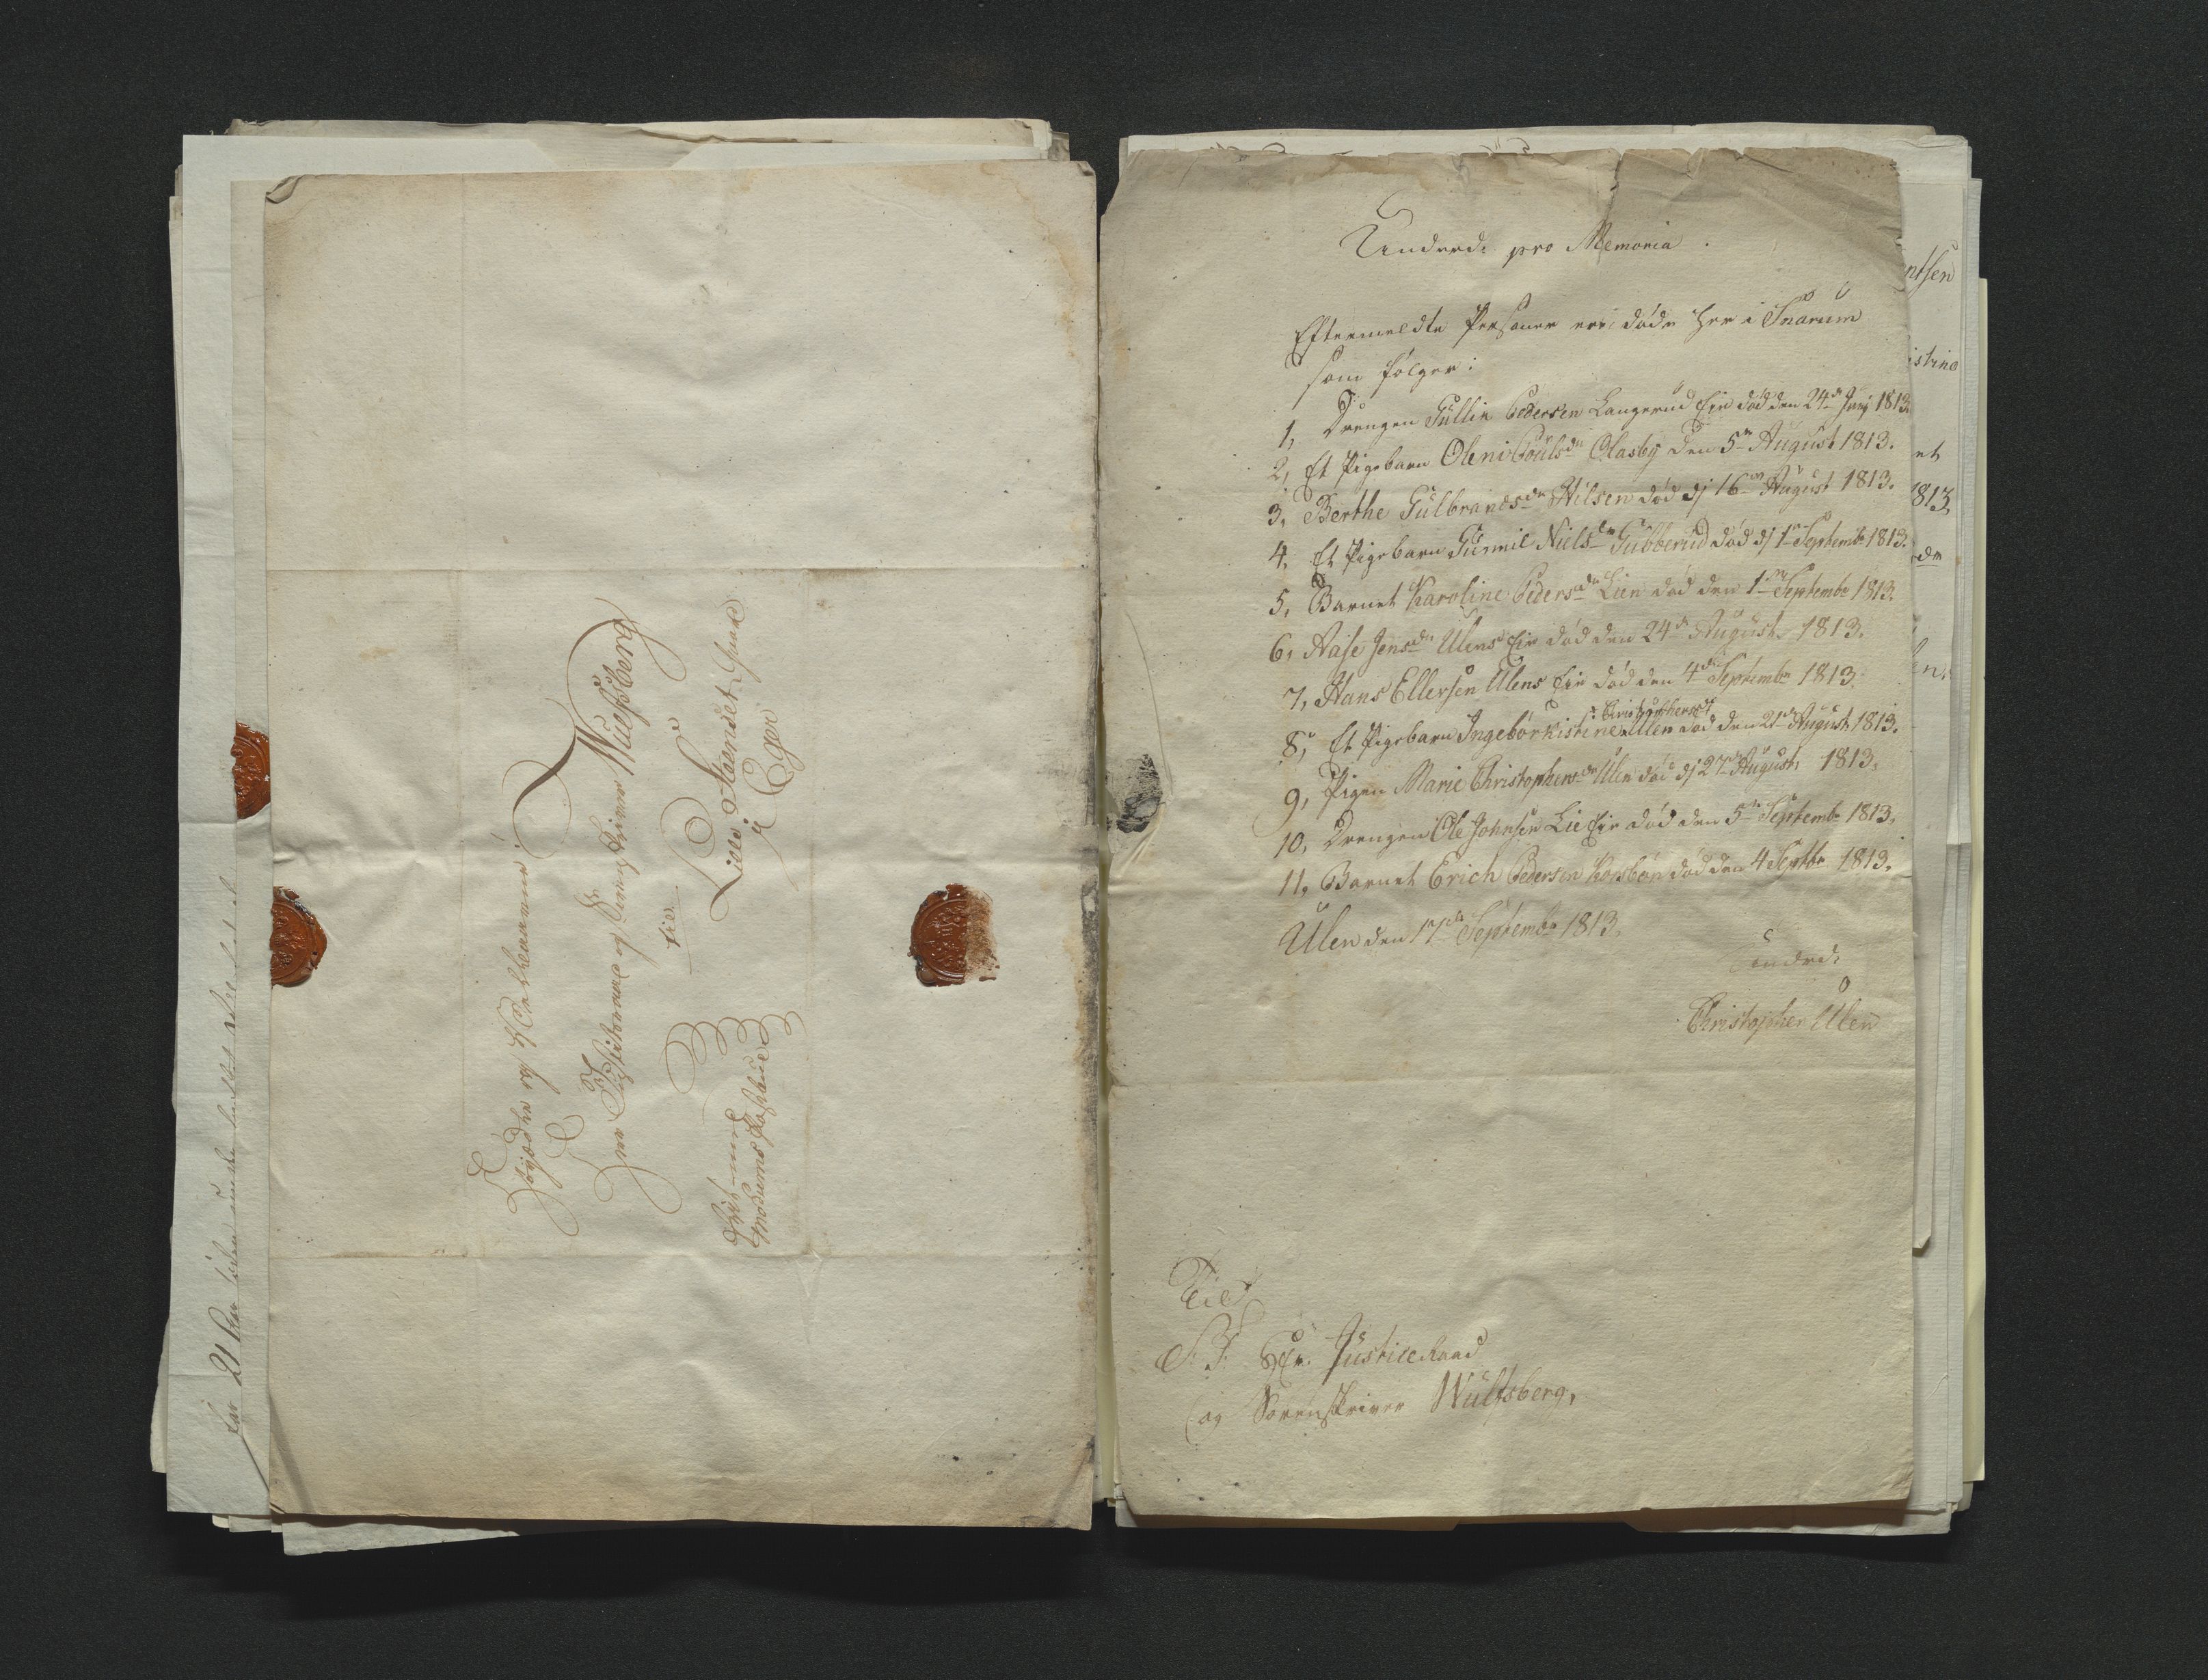 Høyædle og Velbaarne
Herr Justitsraad og Sorenskriver Wulfsberg
til
Lille Stændet Gaard
i Eger
Modums Posthuus
For 21
Underd: pro Memoria.
Eftermeldte Personer ere døde her i Snarum
som følger:
1, Drengen Gullik Pedersen Langerud Eie død den 24de Junj 1813
2, Et Pigebarn Oleni Poulsdr Olasby den 5te August 1813.
3, Berthe Gulbrandsdr Hilsen død dj 16de August 1813.
4, Et Pigebarn Gunnil Nielsdr Gubberud død dj 1te Septembr 1813.
5, Barnet Karoline Pedersdr Lien død den 1te Septembr 1813.
6, Aase Jensdr Ulens Eie død den 24de August 1813.
7, Hans Ellersen Ulens Eie død den 4de Septembr 1813.
8, Et Pigebarn Ingebor Kistine Christophersdr Ulen død den 21de August 1813.
9, Pigen Marie Christophersdr Ulen død dj 27de August 1813.
10, Drengen Ole Johnsen Lie Eie død den 5te Septembr 1813.
11, Barnet Erich Pedersen død den 4 Septbr 1813.
Ulen den 17de Septembr 1813.
Underd:
Christopher Ulen
Til
S. T. Hr. Justice Raad
og Sorenskriver Wulfsberg,